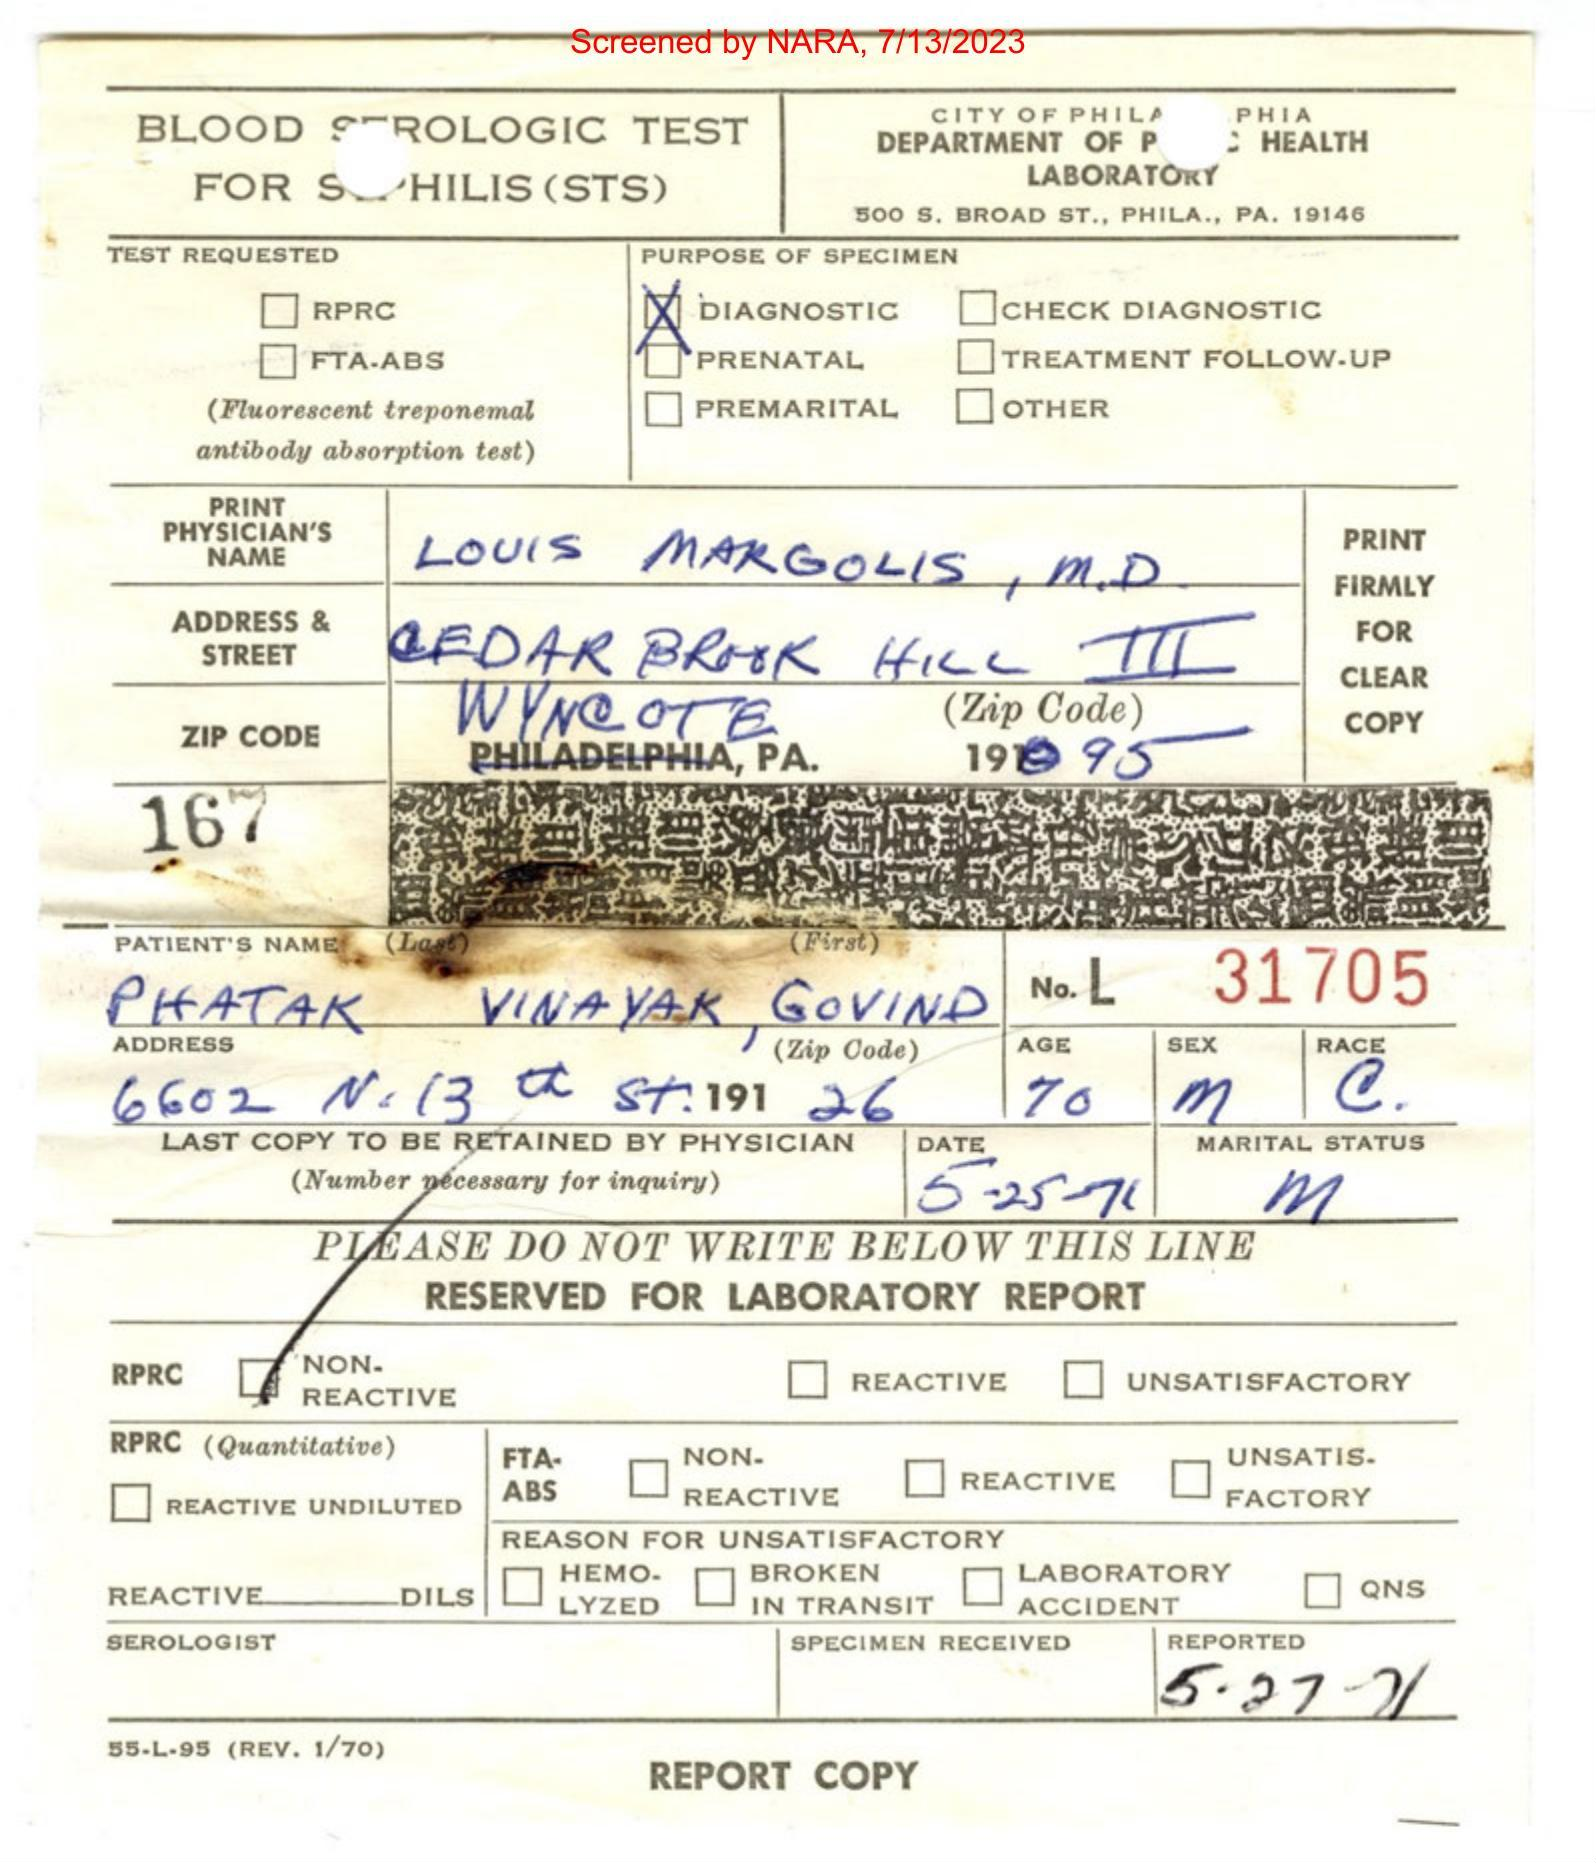 Screened by NARA, 7/13/2023
BLOOD SEROLOGIC TEST
FOR SYPHILIS (STS)
CITY OF PHILADELPHIA
DEPARTMENT OF PUBLIC HEALTH
LABORATORY
500 S. BROAD ST., PHILA., PA. 19146
TEST REQUESTED
RPRC
FTA-ABS
(Fluorescent treponemal
antibody absorption test)
PURPOSE OF SPECIMEN
X DIAGNOSTIC CHECK DIAGNOSTIC
PRENATAL TREATMENT FOLLOW-UP
PREMARITAL OTHER
PRINT
PHYSICIAN'S
NAME
LOUIS MARGOLIS, M.D.
ADDRESS &
STREET
CEDAR BROOK HILL III
ZIP CODE
WYNCOTE (Zip Code)
PHILADELPHIA, PA. 19195
PRINT
FIRMLY
FOR
CLEAR
COPY
167
PATIENT'S NAME (Last) (First)
PHATAK VINAYAK, GOVIND
No. L 31705
ADDRESS (Zip Code)
6602 N. 13th St. 191 26
AGE
70
SEX
M
RACE
C.
LAST COPY TO BE RETAINED BY PHYSICIAN
(Number necessary for inquiry)
DATE
5-25-71
MARITAL STATUS
M
PLEASE DO NOT WRITE BELOW THIS LINE
RESERVED FOR LABORATORY REPORT
RPRC NON-
REACTIVE
REACTIVE UNSATISFACTORY
RPRC (Quantitative)
REACTIVE UNDILUTED
REACTIVE DILS
FTA-
ABS
NON-
REACTIVE
REACTIVE
UNSATIS-
FACTORY
REASON FOR UNSATISFACTORY
HEMO-
LYZED
BROKEN
IN TRANSIT
LABORATORY
ACCIDENT
QNS
SEROLOGIST
SPECIMEN RECEIVED
REPORTED
5-27-71
55-L-95 (REV. 1/70)
REPORT COPY